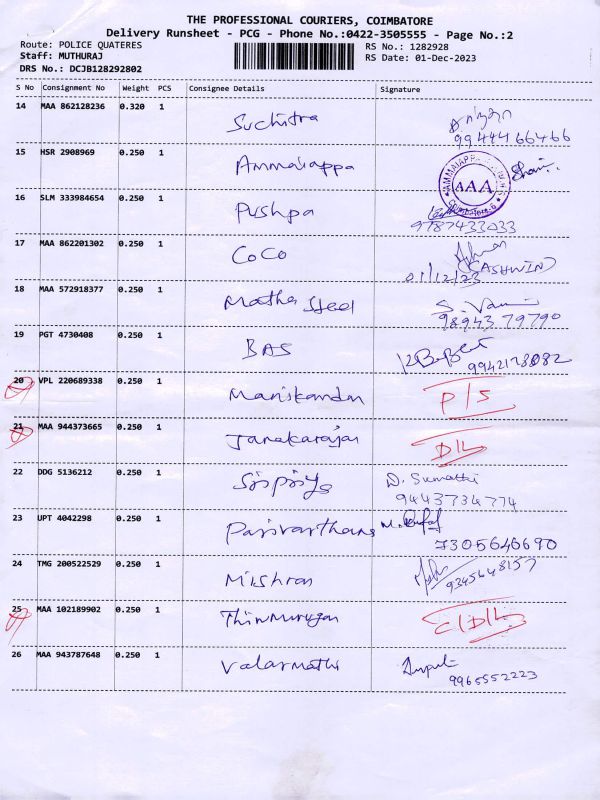 THE PROFESSIONAL COURIERS, COIMBATORE
Delivery Runsheet - PCG - Phone No.:0422-3505555 - Page No.:2
Route: POLICE QUATERES
Staff: MUTHURAJ
DRS No.: DCJB128292802
RS No.: 1282928
RS Date: 01-Dec-2023
S No Consignment No Weight PCS Consignee Details Signature
14 MAA 862128236 0.320 1 Suchitra
9944466466
15 HSR 2908969 0.250 1 Ammaiappa
AAA
16 SLM 333984654 0.250 1 Pushpa
9787433033
17 MAA 862201302 0.250 1 CoCo
(ASHWIN)
01/12/23
18 MAA 572918377 0.250 1 Matha Steel
98943 79790
19 PGT 4730408 0.250 1 BAS
9942178082
20 VPL 220689338 0.250 1 Manikandan P/S
21 MAA 944373665 0.250 1 Janakarajan D/L
22 DDG 5136212 0.250 1 D. Sumathi
9443734774
23 UPT 4042298 0.250 1
7305646690
24 TMG 200522529 0.250 1 Mishran
9345648157
25 MAA 102189902 0.250 1 Thirumurugan C/D/L
26 MAA 943787648 0.250 1 Valarmathi
9965552223